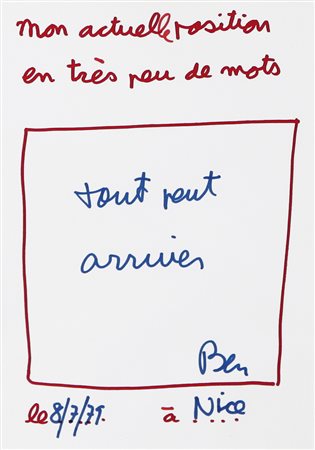 Mon actuelle position
en très peu de mots
tout peut
arriver
Ben
le 8/7/79. à Nice